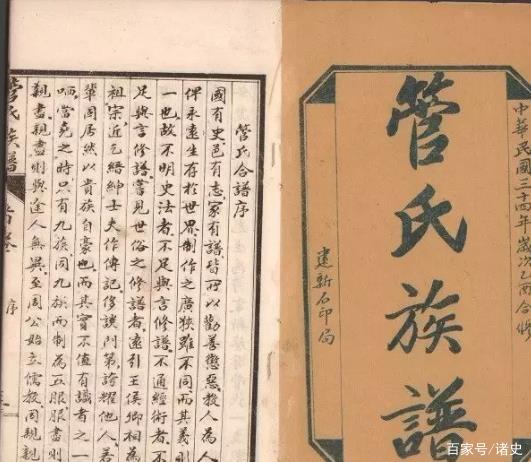 中華民國三十四年歲次乙酉合修
管氏族譜
建新石印局
管氏合譜序
國有史邑有志家有譜皆所以勸善懲惡教人為人
俾永遠生存於世界制作之廣狹雖不同而其義則
一也故不明史法者不足與言修譜不通經術者不
足與言修譜嘗見世俗之修譜者遠引王侯卿相為
祖宗近乞縉紳士夫作傳記侈談門第誇耀他人若
輩固居然以貴族自豪也而其實不值有識者之一
哂當堯之時只有九族同九族而制為五服服盡則
親盡親盡則與途人無異至周公始立儒教因親親
管氏族譜
首卷
序
百家号/诸史